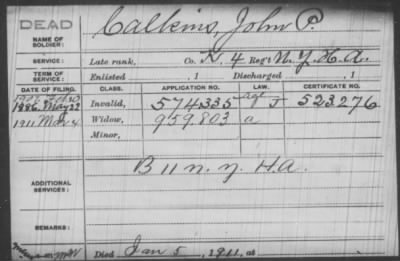 DEAD
NAME OF SOLDIER: Calkins, John P.
SERVICE: Late rank, Co. K, 4 Reg't N.Y.H.A.
TERM OF SERVICE: Enlisted , 1 Discharged , 1
DATE OF FILING. CLASS. APPLICATION NO. LAW. CERTIFICATE NO.
1886, May 22 Invalid, 574335 J 523276
1911 Widow, 959.803 a
Minor,
ADDITIONAL SERVICES: B 11 N.Y. H.A.
REMARKS:
Died Jan 5, 1911, at